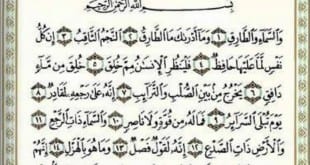 بِسْمِ اللَّهِ الرَّحْمَٰنِ الرَّحِيمِ
وَالسَّمَاءِ وَالطَّارِقِ ١ وَمَا أَدْرَاكَ مَا الطَّارِقُ ٢ النَّجْمُ الثَّاقِبُ ٣ إِن كُلُّ
نَفْسٍ لَّمَّا عَلَيْهَا حَافِظٌ ٤ فَلْيَنظُرِ الْإِنسَانُ مِمَّ خُلِقَ ٥ خُلِقَ مِن مَّاءٍ
دَافِقٍ ٦ يَخْرُجُ مِن بَيْنِ الصُّلْبِ وَالتَّرَائِبِ ٧ إِنَّهُ عَلَىٰ رَجْعِهِ لَقَادِرٌ ٨
يَوْمَ تُبْلَى السَّرَائِرُ ٩ فَمَا لَهُ مِن قُوَّةٍ وَلَا نَاصِرٍ ١٠ وَالسَّمَاءِ ذَاتِ الرَّجْعِ ١١
وَالْأَرْضِ ذَاتِ الصَّدْعِ ١٢ إِنَّهُ لَقَوْلٌ فَصْلٌ ١٣ وَمَا هُوَ بِالْهَزْلِ ١٤ إِنَّهُمْ